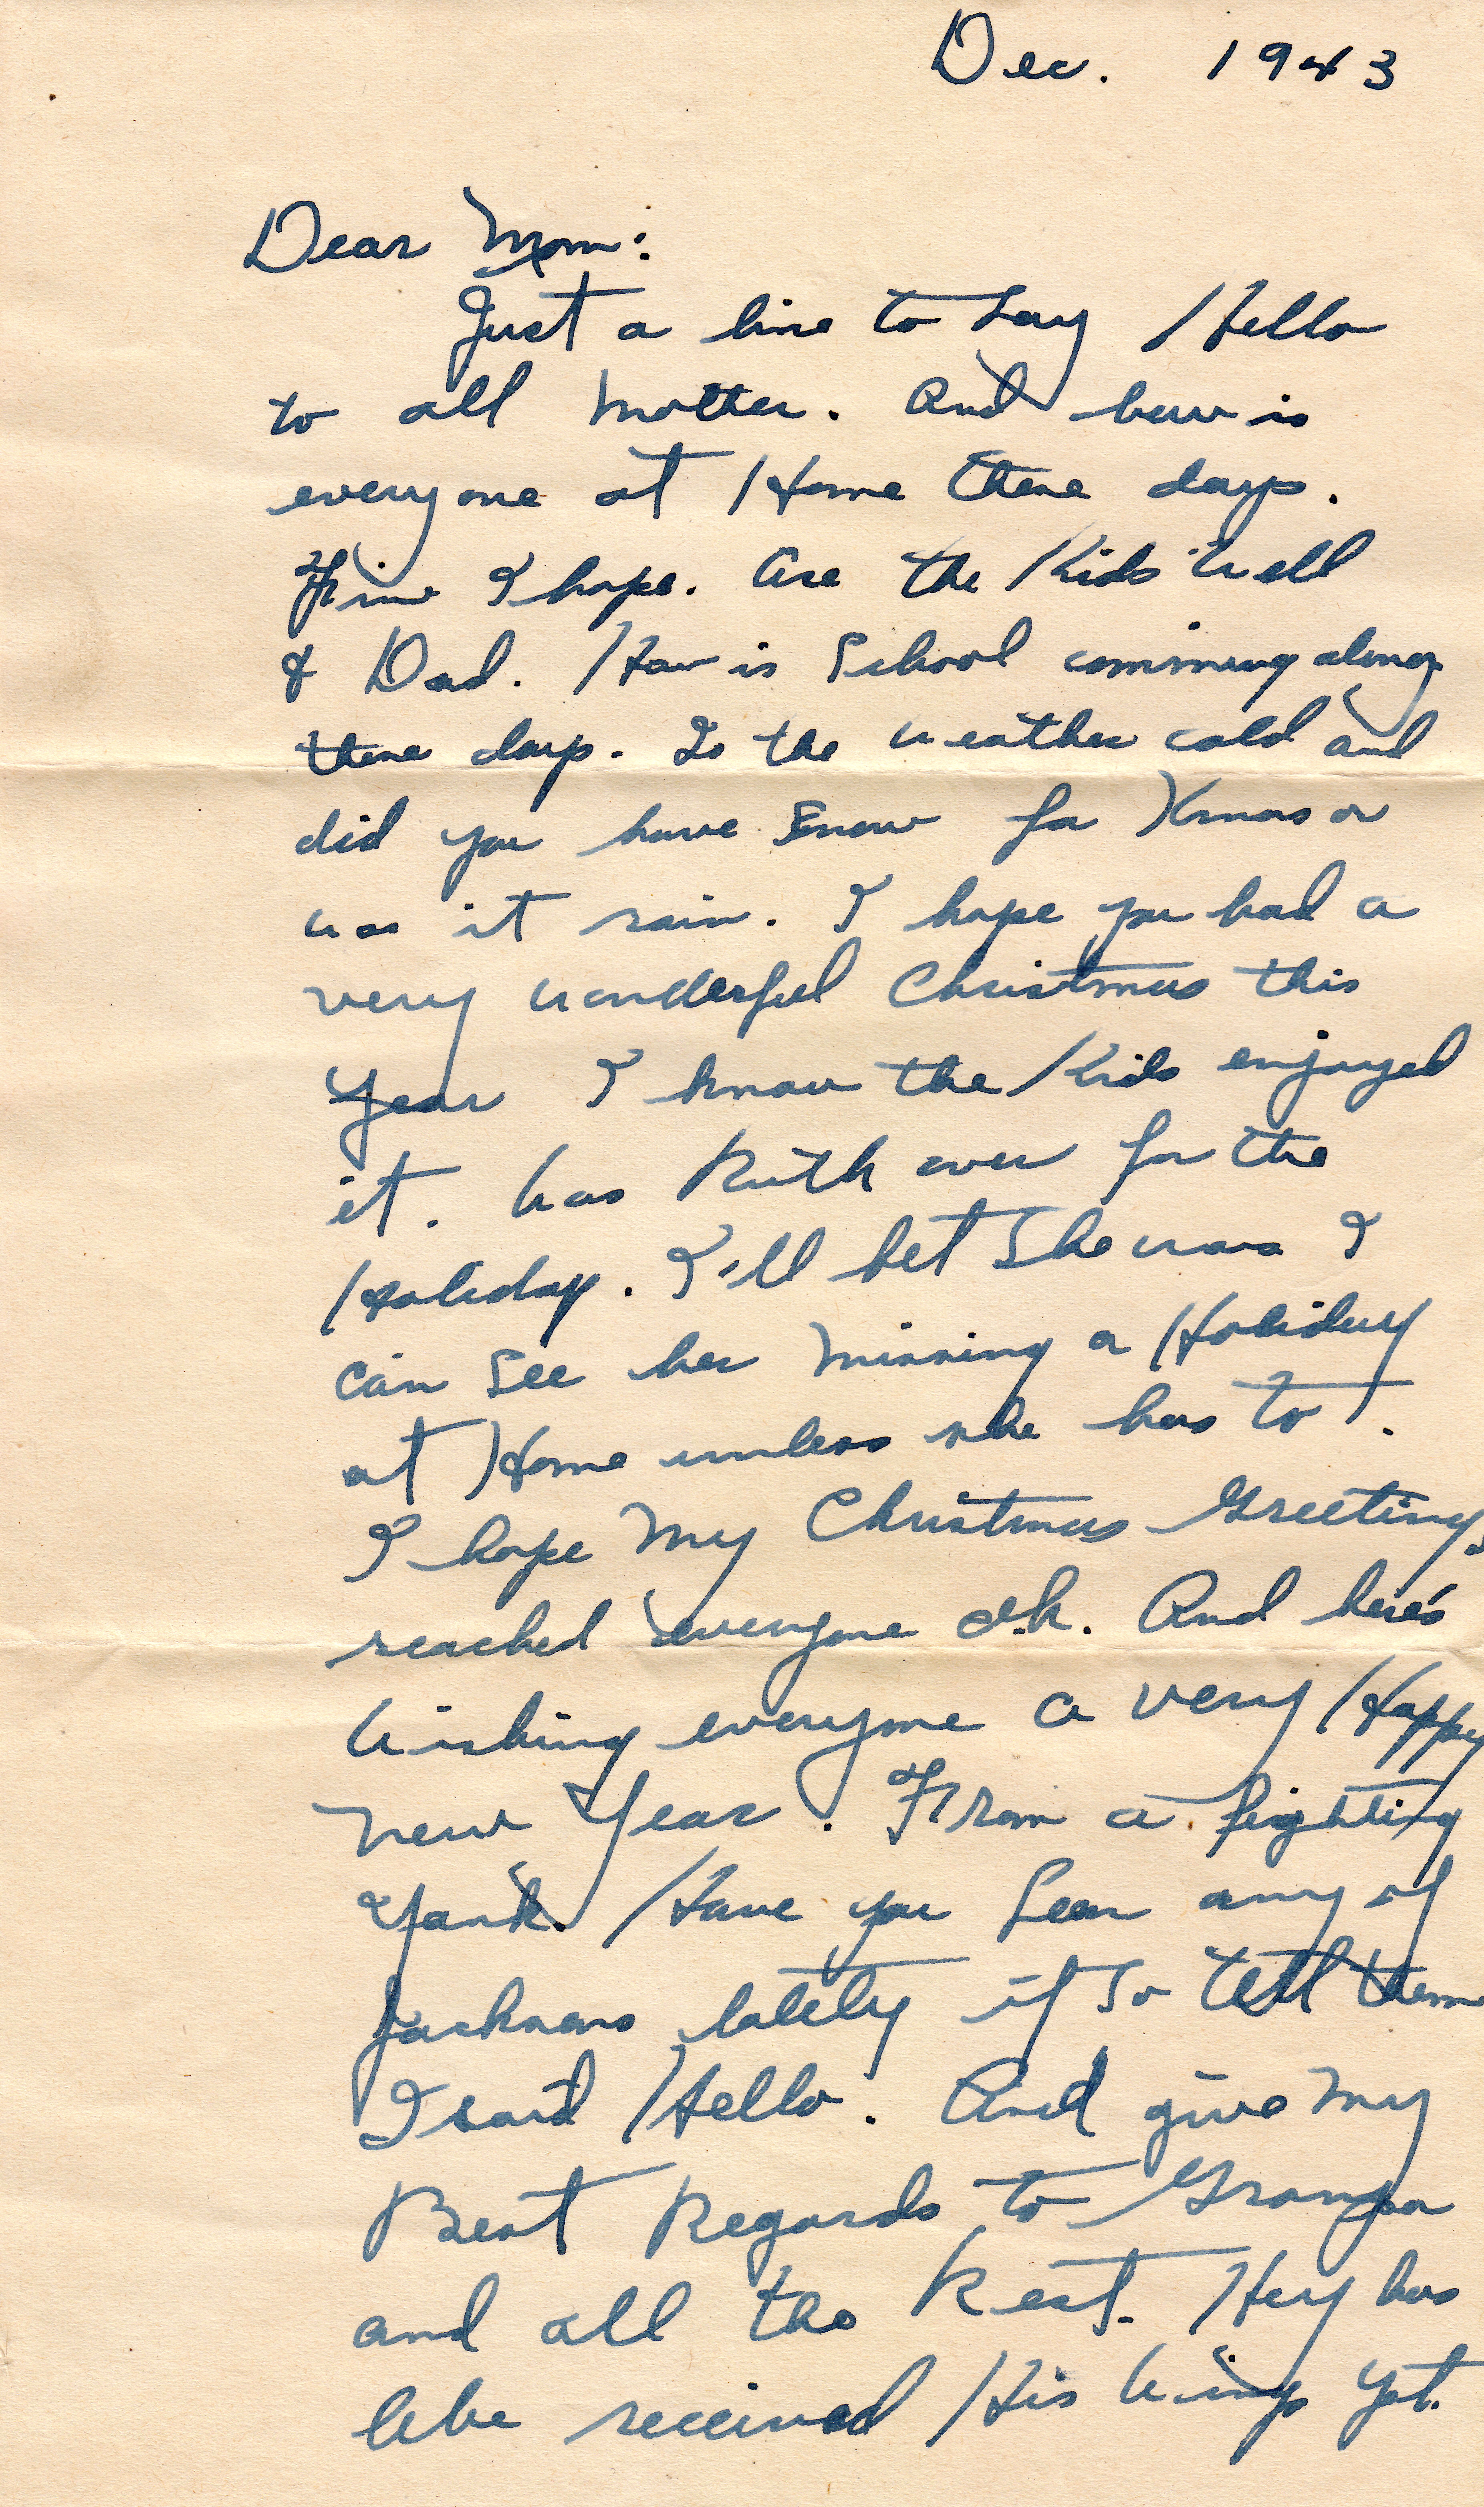 Dec. 1943
Dear Mom:
Just a line to say Hello
to all Mother. And how is
everyone at Home these days.
Fine I hope. Are the Kids well
& Dad. How is School comming along
these days. Is the weather cold and
did you have Snow for Xmas or
was it rain. I hope you had a
very wonderful Christmas this
Year I know the Kids enjoyed
it. Was Ruth over for the
Holiday. I'll bet She was I
can See her missing a Holiday
at Home unless she has to.
I hope My Christmas Greetings
reached everyone o.k. And here's
wishing everyone a very Happy
New Year. From a fighting
Yank. Have you Seen any of
lately if So tell them
I said Hello. And give My
Best Regards to Granpa
and all the Rest. Hey has
Abe received His Wings Yet.